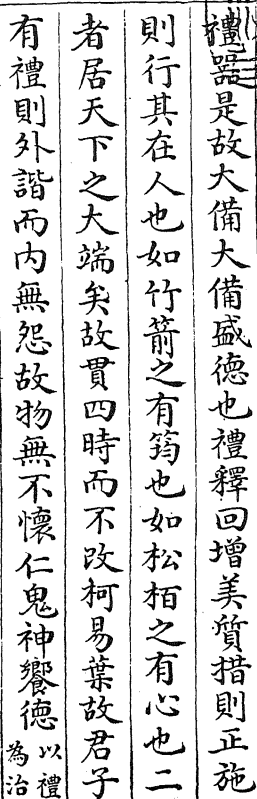 禮器是故大備大備盛德也禮釋回增美質措則正施
則行其在人也如竹箭之有筠也如松栢之有心也二
者居天下之大端矣故貫四時而不改柯易葉故君子
有禮則外諧而內無怨故物無不懷仁鬼神饗德以禮
為治